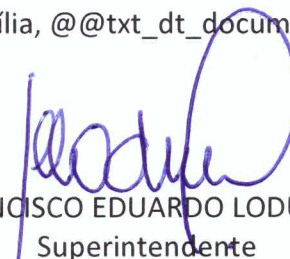 ília, @@txt_dt_docum
NCISCO EDUARDO LODU
Superintendente